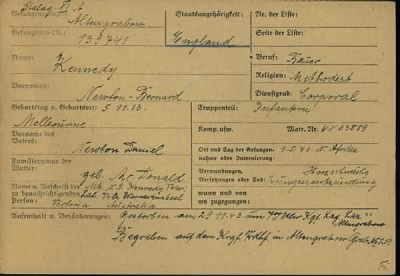 Stalag XI A
Altengrabow
Gefangenen-Nr.: 139741
Name: Kennedy
Vornamen: Newton-Bernard
Geburtstag u. Geburtsort: 5.11.13.
Melbourne
Vorname des Vaters: Newton Daniel
Familienname der Mutter: geb. Mc. Donald
Name u. Anschrift der
Person: Victoria Australia
Staatsangehörigkeit: England
Nr. der Liste:
Seite der Liste:
Beruf: Bauer
Religion: Methodist
Dienstgrad: Corporal
Truppenteil: Infanterie
Komp. usw. Matr. Nr.
Ort und Tag der Gefangennahme oder Internierung: 1.5.41. N. Afrika
Verwundungen, Verletzungen oder Tod: Herzschwäche Lungenentzündung
wann und von
wo zugegangen:
Aufenthalt u. Veränderungen: Gestorben am 29.11.43 im Kgf. Laz. Altengrabow
Begraben auf dem Krgf. Frdhf. in Altengrabow